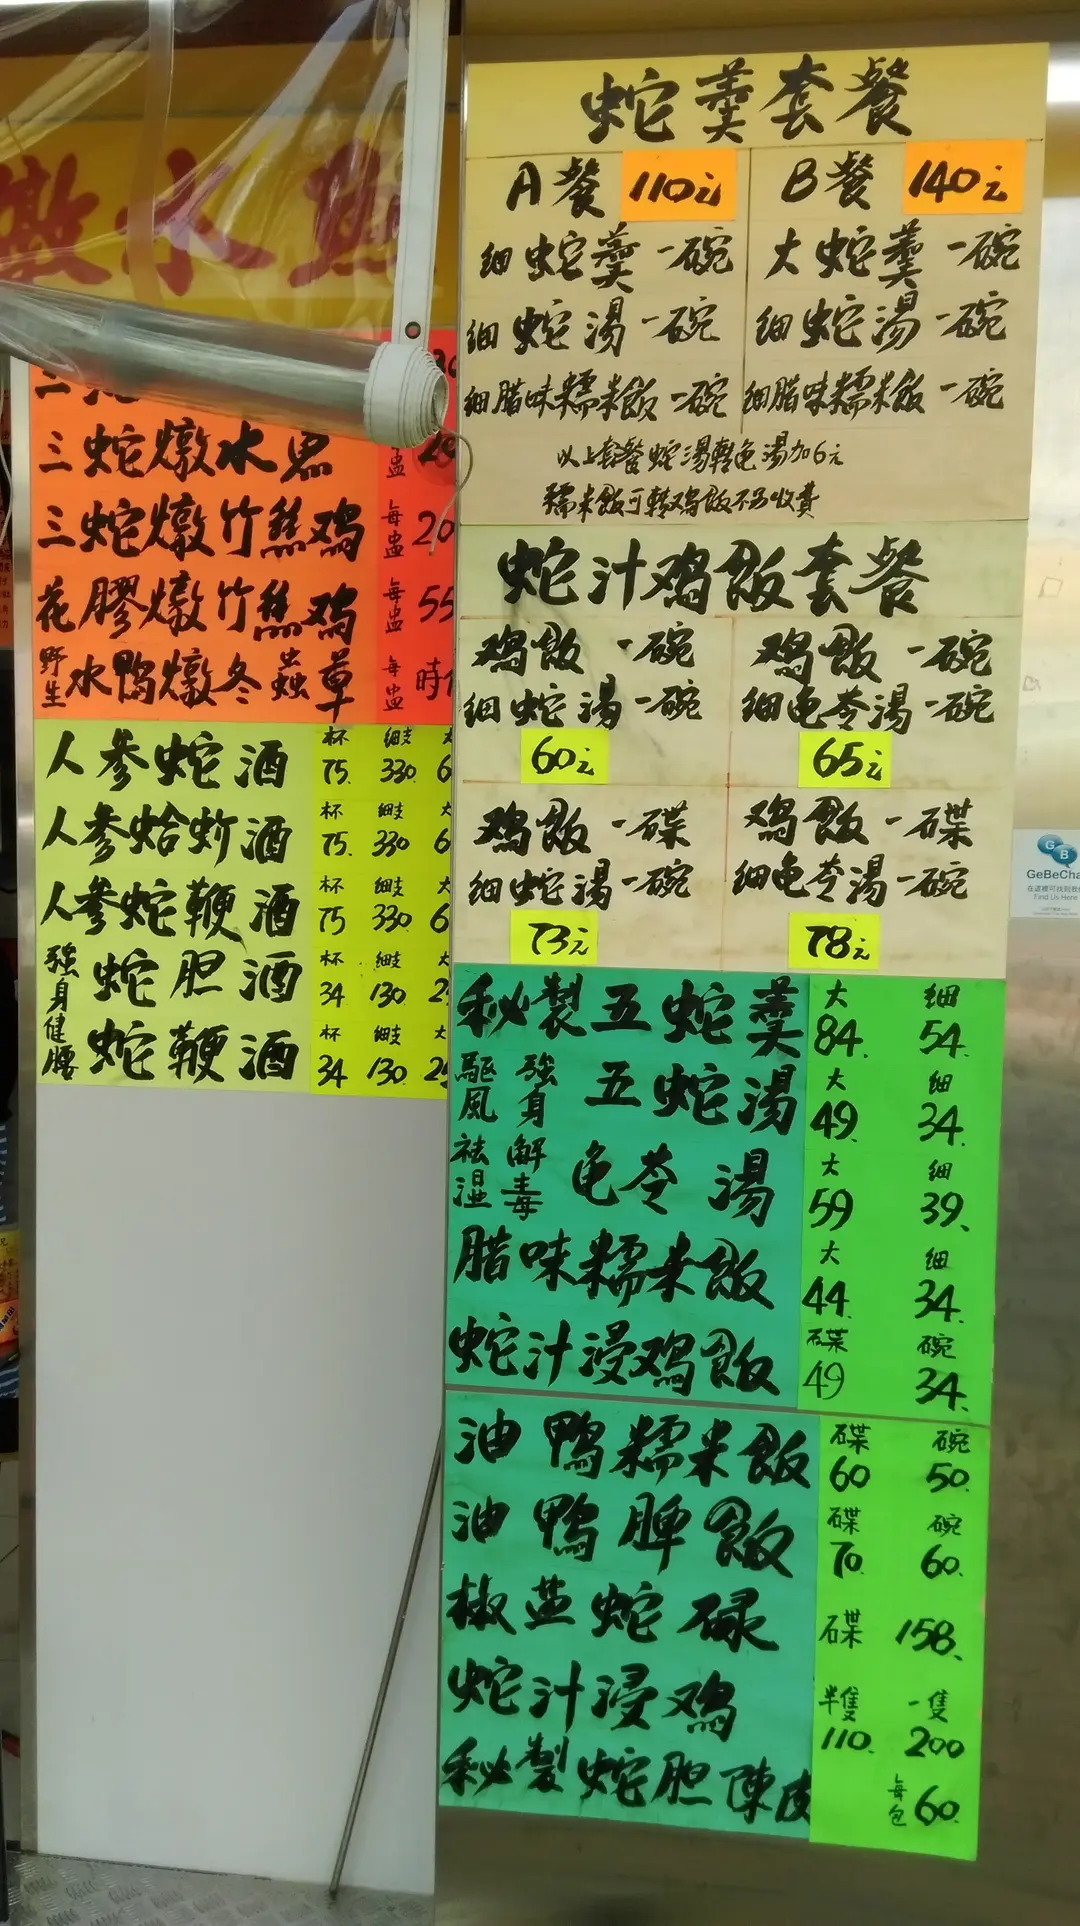 燉水
三蛇燉水魚
盅
三蛇燉竹絲鸡 每盅 20
花膠燉竹絲鸡 每盅 55
野生水鴨燉冬蟲草 每盅 時
人參蛇酒 杯 75. 細支 330. 大 6
人參蛤蚧酒 杯 75. 細支 330. 大 6
人參蛇鞭酒 杯 75 細支 330. 大 6
強身健腰
蛇胆酒 杯 34 細支 130. 大 2
蛇鞭酒 杯 34 細支 130. 大 25
蛇羹套餐
A餐 110元
細蛇羹一碗
細蛇湯一碗
細腊味糯米飯一碗
B餐 140元
大蛇羹一碗
細蛇湯一碗
細腊味糯米飯一碗
以上套餐蛇湯轉龟湯加6元
糯米飯可轉鸡飯不另收費
蛇汁鸡飯套餐
鸡飯一碗
細蛇湯一碗
60元
鸡飯一碗
細龟苓湯一碗
65元
鸡飯一碟
細蛇湯一碗
73元
鸡飯一碟
細龟苓湯一碗
78元
秘製五蛇羹 大 84. 細 54.
驅風 強身 五蛇湯 大 49. 細 34.
祛湿 解毒 龟苓湯 大 59 細 39.
腊味糯米飯 大 44. 細 34.
蛇汁浸鸡飯 碟 49 碗 34.
油鴨糯米飯 碟 60 碗 50.
油鴨脾飯 碟 70. 碗 60.
椒盐蛇碌 碟 158.
蛇汁浸鸡 半隻 110. 一隻 200
秘製蛇胆陳皮 每包 60.
GeBeCha
在這裡可找到
Find Us Here